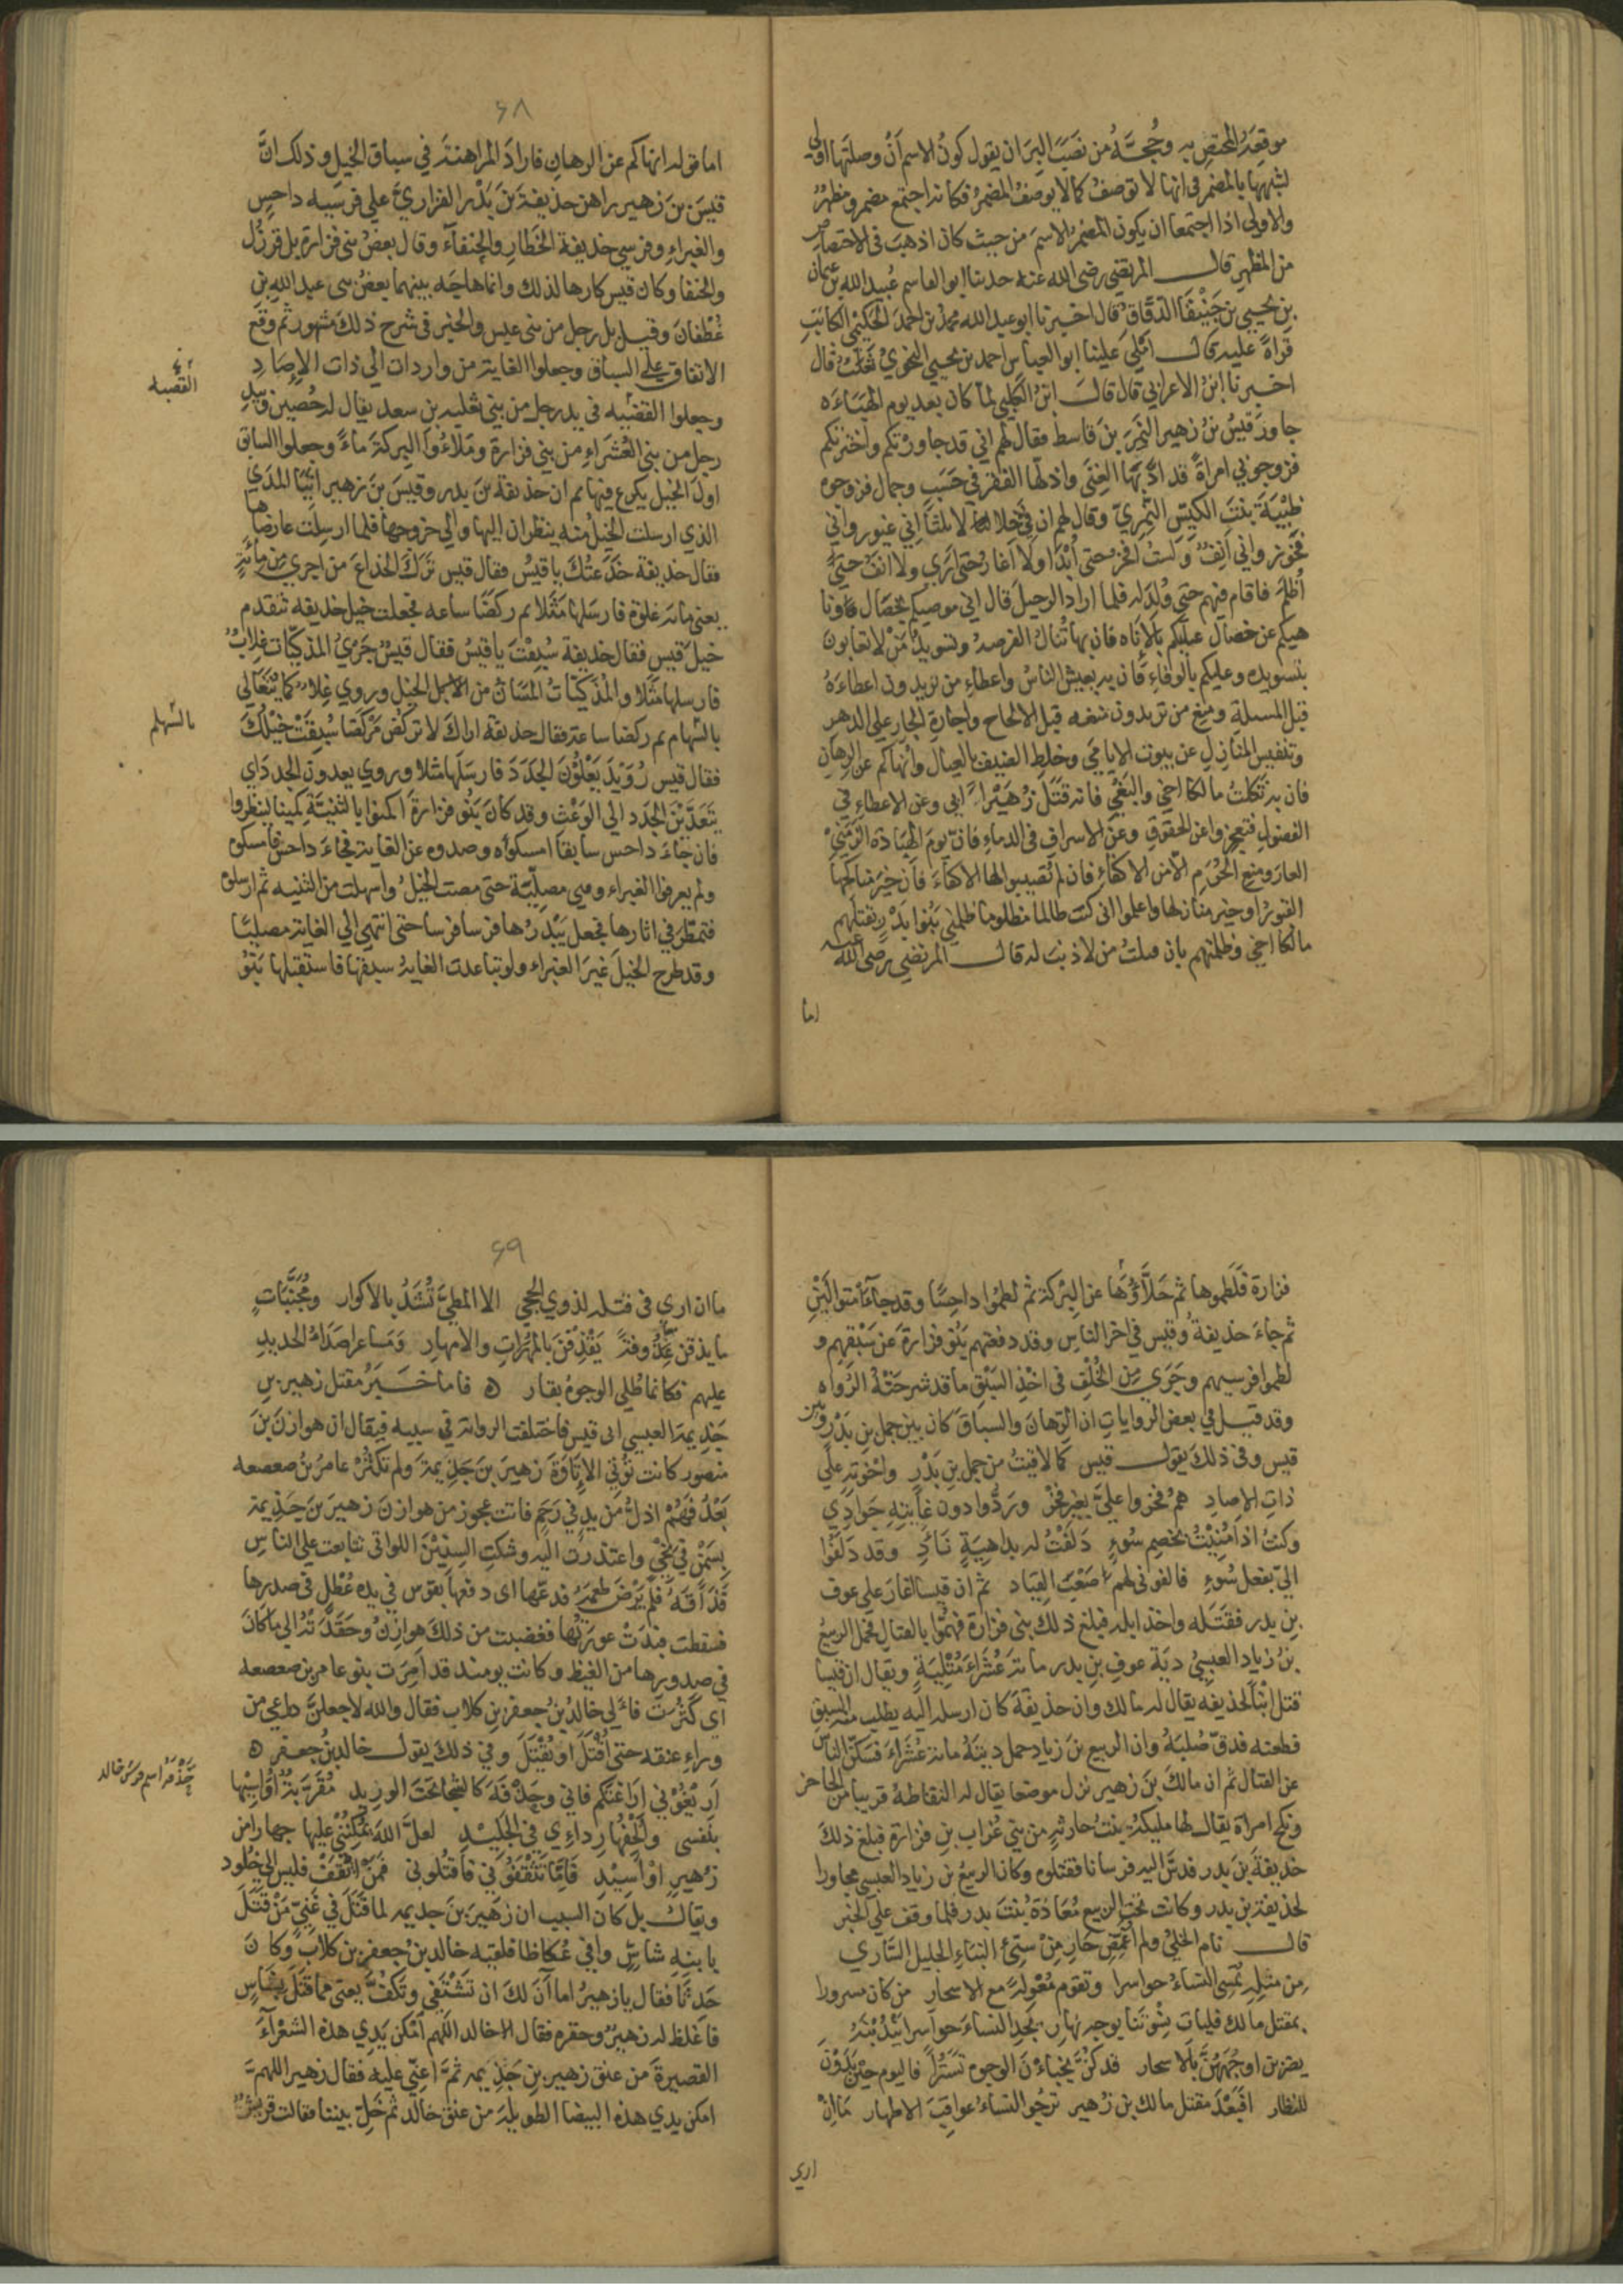 موقعَه المختص به وحُجَّةُ من نصَبَ البِرَ ان يقول كونُ الاسم اَنْ وصلتَها اولى
لشبهها بالمضمر فى انها لا توصفُ كما لا يوصفُ المضمرُ فكانه اجتمع مضمر ومظهرٌ
والاولى اذا اجتمعا ان يكون المضمرُ الاسمَ من حيث كان اذهبَ فى الاختصاص
من المظهرِ قال المرتضى رضى الله عنه حدثنا ابو القاسم عُبيد الله بن عثمان
بن يحيى بن جَنِيْقَا الدَّقَّاقُ قال اخبرنا ابو عبد الله محمد بن احمد الحكيمى الكاتبِ
قراةً عليه قال املى علينا ابو العباس احمد بن يحيى النحويُّ ثعلبٌ قال
اخبرنا ابنُ الاعرابي قال قال ابنُ الكلبي لما كان بعد يوم الهبَاءَه
جاورَ قيسُ بنُ زهير النَمِرَ بنَ قاسط فقال لهم اني قد جاورتكم واخترتكم
فزوجوني امراةً قد ادَّبَها الغِنَى واذلّها الفقر في حَسَبٍ وجمال فزوجوه
ظبْيَةَ بنتَ الكيِّس النَّمِريّ وقال لهم ان فِيَّ خلالا ثلثا اِنى غيور واني
فخور واني اَنِفٌ وَلستُ افخرُ حتى اُبْدَا ولا اغارُ حتى اَرَى ولا انَفُ حتى
اُظلَم فاقام فيهم حتى وُلدَ له فلما اراد الرحيلَ قال اني موصيكم بخصَال وناهيكم
عن خصَال عليكم بالاَناه فان بها تُنالُ الفرصةُ وتسويد مَنْ لا تعابون
بتسويده وعليكم بالوفاءِ فان به يعيش الناسُ واعطاءِ من تريدون اعطاءَهُ
قبل المسئلة ومنعِ من تريدون منعَه قبل الالحاح واِجارةِ الجار على الدهر
وتنفيس المنَازلِ عن بيوت الايامَى وخلطِ الضيف بالعيال وانهاكم عن الرِهانِ
فان به ثَكِلتُ مالكا اخي والبَغْي فانه قَتَلَ زُهَيْراً ابي وعن الاعطاءِ في
الفضولِ فتعجزوا عن الحقوق وعن الاسرافِ فى الدماءِ فانّ يومَ الهَباءَه الزَمَنِي
العارَ ومنعِ الحُرَمِ الّا من الاكفاءِ فان لم تُصيبوا لها الاكفاءَ فان خيرَ مناكحِها
القبورُ او خير منازلها واعلموا انى كنت ظالما مظلوما ظلمني بَنُوا بَدْرٍ بقتلهم
مالكا اخي وظلمتهم بان قتلتُ من لا ذنب له قال المرتضى رَضى الله عنه
اما
٦٨
اما قوله انهاكم عن الرهانِ فارادَ المراهنة في سباق الخيل وذلك انَّ
قيسَ بنَ زهير راهن حذيفة بنَ بَدْر الفزاريَّ على فرسَيه داحس
والغبراءِ وفرسَي حذيفة الخَطّارِ والحنفآء وقال بعضُ بنى فزارةَ بل قرزُل
والحنفا وكان قيس كارها لذلك وانما هاجَه بينهما بعضُ بنى عبد الله بن
غطفانَ وقيل بل رجل من بنى عبس والخبر فى شرح ذلك مشهور ثم وقع
الاتفاق على السباق وجعلوا الغاية من واردات الى ذات الاِصَادِ
القَصَبه
وجعلوا القصَبه فى يد رجل من بني ثعلبه بن سعد يقال له حُصين وبيدِ
رجل من بني العُشَراءِ من بني فزارة ومَلاءُوا البركةَ ماءً وجعلوا السابق
اولَ الخيل يكرع فيها ثم ان حذيفة بنَ بدر وقيسَ بنَ زهير اتَيا المَدَى
الذي ارسلت الخيلُ منه ينظران اليها والى خروجها فلما ارسِلَت عارضاها
فقال حذيفة خَدَعتُكَ ياقيسُ فقال قيس تَرَكَ الخداعَ من اجرى مِن مائةٍ
يعنى مائه غلوة فارسَلها مَثَلا ثم ركضَا ساعه فجعلت خيل حذيفه تتقدم
خيلَ قيس فقال حذيفة سُبِقْتَ ياقيسُ فقال قيسٌ جَرْيُ المذكّيات غِلابٌ
فارسلها مَثَلا والمذكّيَاتُ المسَانُّ من الخيل وروي غِلاءٌ كما يُتَغَالَى
بالسّهم
بالسّهام ثم ركضا ساعة فقال حذيفة اراكَ لا تركُض مَركَضا سُبِقَتْ خيْلُكَ
فقال قيس رُوَيْدَ يَعْلُوْنَ الجَدَدَ فارسَلها مثلا وروي يعدون الجدد اي
يتَعَدَّيْنَ الجَدَد الى الوَعْث وقد كانَ بَنُو فزارةَ اكمنوا بالثنيّة كمينا لينظروا
فان جاء داحس سابقا امسكوه وصدوه عن الغاية فجاءَ داحس فامسكوه
ولم يعرفوا الغبراء وهي مصلّيّة حتى مضت الخيلُ واسهلت من الثنيه ثم ارسلوه
فتمطّر في اثارها فجعل يَبْدُرُها فرسا فرسا حتى انتهى الى الغاية مصليًا
وقد طرح الخيلَ غيرَ الغبراء ولو تباعدت الغايةُ سبقها فاستقبلها بَنُوْ
فزارة فلَطموها ثم حَلَّاؤُها عن البِركة ثم لطمُوا داحِسًا وقد جاءَا متواليَيْنِ
ثم جاءَ حذيفة وقيس في اخر الناس وقد دفعتهم بَنُو فزارةَ عن سَبقهم و
لطموا فرسيهم وجَرَى مِن الخُلْفِ فى اخْذِ السَبْق ما قد شرحَتْهُ الرُواه
وقد قيل في بعض الروايات ان الرّهانَ والسباقَ كان بين حمل بن بَدْر وبين
قيس وفى ذلك يقول قيس كما لاقيتُ من حمل بن بَدْرٍ واخوَته على
ذاتِ الاِصادِ همُ فخروا عليَّ بغير فخرٍ ورَدُّوا دون غايته جوادي
وكنتُ اذا مُنِيْتُ بخصم سُوءٍ دَلَفْتُ له بداهِيَةٍ نَآدِ وقد دَلَفُوا
اِليّ بفعل سُوءٍ فالفونى لهم صَعْبَ القِيَاد ثم ان قيسا اغارَ على عوف
بن بدر فقتَلَه واخذ ابله فبلغ ذلك بنى فزارة فهمُّوا بالقتال فحمل الربيعُ
بنُ زياد العبسيُّ ديَةَ عوفِ بنِ بدر مائةَ عُشَراءَ مُتْلِيَةٍ ويقال ان قيسا
قتل ابنًا لحذيفه يقال له مالك وان حذيفةَ كان ارسله اليه يطلب منه السبق
فطعنه فدقّ صُلبَهُ وان الربيع بن زياد حمل دِيَتَهُ مائة عُشَراءَ فسكن الناس
عن القتال ثم ان مالكَ بنَ زهير نزل موضعا يقال له اللقاطةُ قريبا من الحاجز
ونكح امراة يقال لها مليكةُ بنتُ حارثةَ من بني غُرابِ بنِ فزارة فبلغ ذلك
حذيفةَ بنَ بدر فدسَّ اليه فرسانا فقتلوه وكان الربيعُ بن زياد العبسى مجاورا
لحذيفة بن بدر وكانت تحت الربيع مُعَاذةُ بنتُ بدر فلما وقف على الخبر
قال نام الخليُّ ولم اُغمِّض حَارِ مِنْ سَيِّئ النباءِ الجليل السّاري
مِن مثله تُمسى النساءُ حواسرا وتقوم مُعْوِلةً مع الاسحار من كان مسرورا
بمقتل مالك فليات نِسْوتَنا بوجه نهارِ يجد النساءَ حواسرا يَنْدُبْنَهُ
يضربن اوجُهَهُنَّ بالاسحار قد كُنَّ يخباءْنَ الوجوه تَسَتُّراً فاليوم حيْن بَدَوْنَ
للنظّار اَفَبَعْدَ مقتل مالك بن زُهير ترجُو النساءُ عواقبَ الاطهار ما اِنْ
ارى
٦٩
ما ان ارى فى قتله لذوي الحجى الا المَطيَّ تُشَدُّ بالاكوار ومُجَنَّبَاتٍ
ما يذقن عَذُوفةً يَقْذِفْنَ بالمُهَرَاتِ والامهار وَمَساعرا صَدَاءُ الحديدِ
عليهم فكانما طُلى الوجوهُ بقار ه فاما خَبَرُ مقتل زهير بنِ
جَذِيمة العبسي ابى قيس فاختلفت الرواة في سببه فيقال ان هوازن بنَ
منصور كانت تُؤتي الاِتاوةَ زهيرَ بنَ جَذِيمةَ ولم تكثُرْ عامرُ بنُ صعصعه
بَعْدُ فهُمْ اذلُّ من يدٍ في رَحِمٍ فاتت عجوز من هوازنَ زهيرَ بنَ جَذِيمة
بِسَمْنٍ في نِحْيٍ واعتذرت اليه وشكتِ السِنِيْنَ اللواتى تتابعت على الناس
فَذَاقَهُ فلم يَرْضَ طعمَهُ فدعّها اى دفعها بقوس في يده عُطُلٍ فى صدرها
فسقطت فبدَتْ عورتُها فغضبت من ذلك هوازنُ وحَقَدَتْهُ الى ما كانَ
في صدورها من الغيظ وكانت يومئذ قد اَمِرَت بنو عامر بن صعصعه
اى كثُرت فاَلى خالدُ بن جعفر بن كلاب فقال والله لاجعلنّ ذراعي من
وراءِ عنقه حتى اُقتَل او يُقْتَلَ وفي ذلك يقول خالد بن جعفر ه
حَذْفة اسم فرس خالد
اَرِيْغُوْنى اِرَاغتَكم فاني وحَذْفَةَ كالشجا تحتَ الوريدِ مُقَرَّبَةٌ اُوَاسِيْها
بنفسى واُلْحِفُها رداءِي في الجليْدِ لعلَّ اللهَ يمْكِنُنى عليها جهارا من
زُهيرٍ اوْ اَسِيْدِ فَاِمَّا تَثْقفَوُنى فاقتُلونى فَمَنْ اَثْقَفْ فليس الى خُلُود
ويقال بل كان السبب ان زُهَيْرَ بنَ جذيمه لما قَتَلَ في غَنِيٍّ مَنْ قَتَلَ
بابنِهِ شاسٍ وافي عُكاظا فلقيَه خالد بن جعفر بن كلاب وكانَ
حَدِثًا فقال يازهيرُ اما آنَ لكَ ان تَشْتَفِى وتَكُفَّ يعنى مما قَتَلَ بشاسٍ
فاغلظ له زهيرٌ وحقره فقال خالد اللّهم اَمكِن يَدِي هذه الشَعْراءَ
القصيرةَ من عنق زهيرِ بنِ جَذِيمه ثمّ اعِنّي عليه فقال زهير اللهمّ
امكن يدي هذه البيضا الطويلة من عنق خالد ثم خَلِّ بيننا فقالت قريشٌ